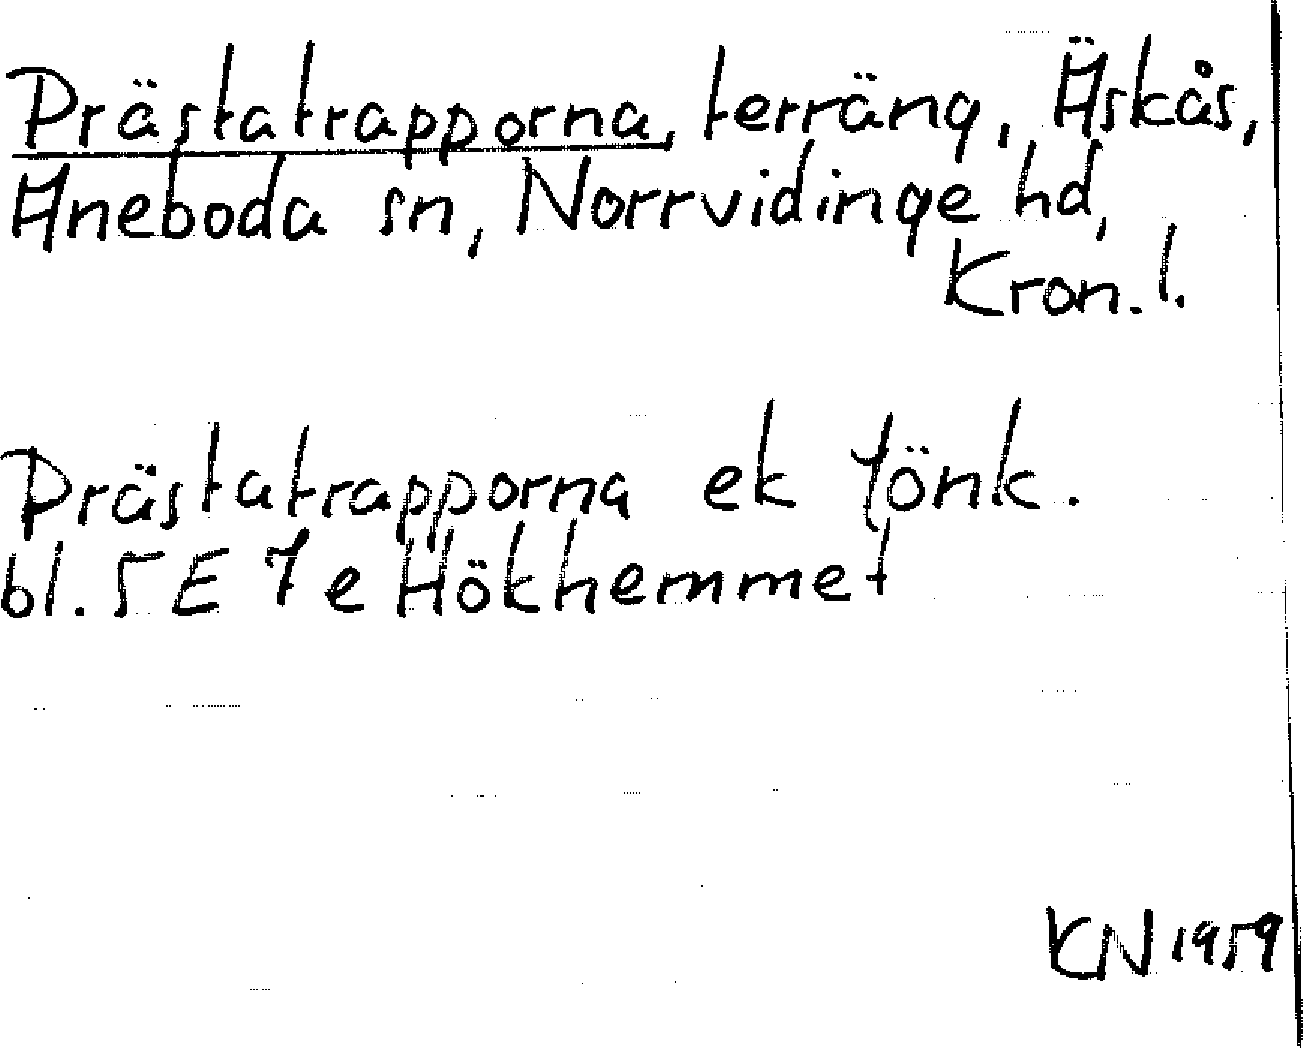 Prästatrapporna, terräng, Äskås,
Aneboda sn, Norrvidinge hd,
Kron. l.
Prästatrapporna ek fönk.
bl. 5 E 7 e Hökhemmet
KN 1959